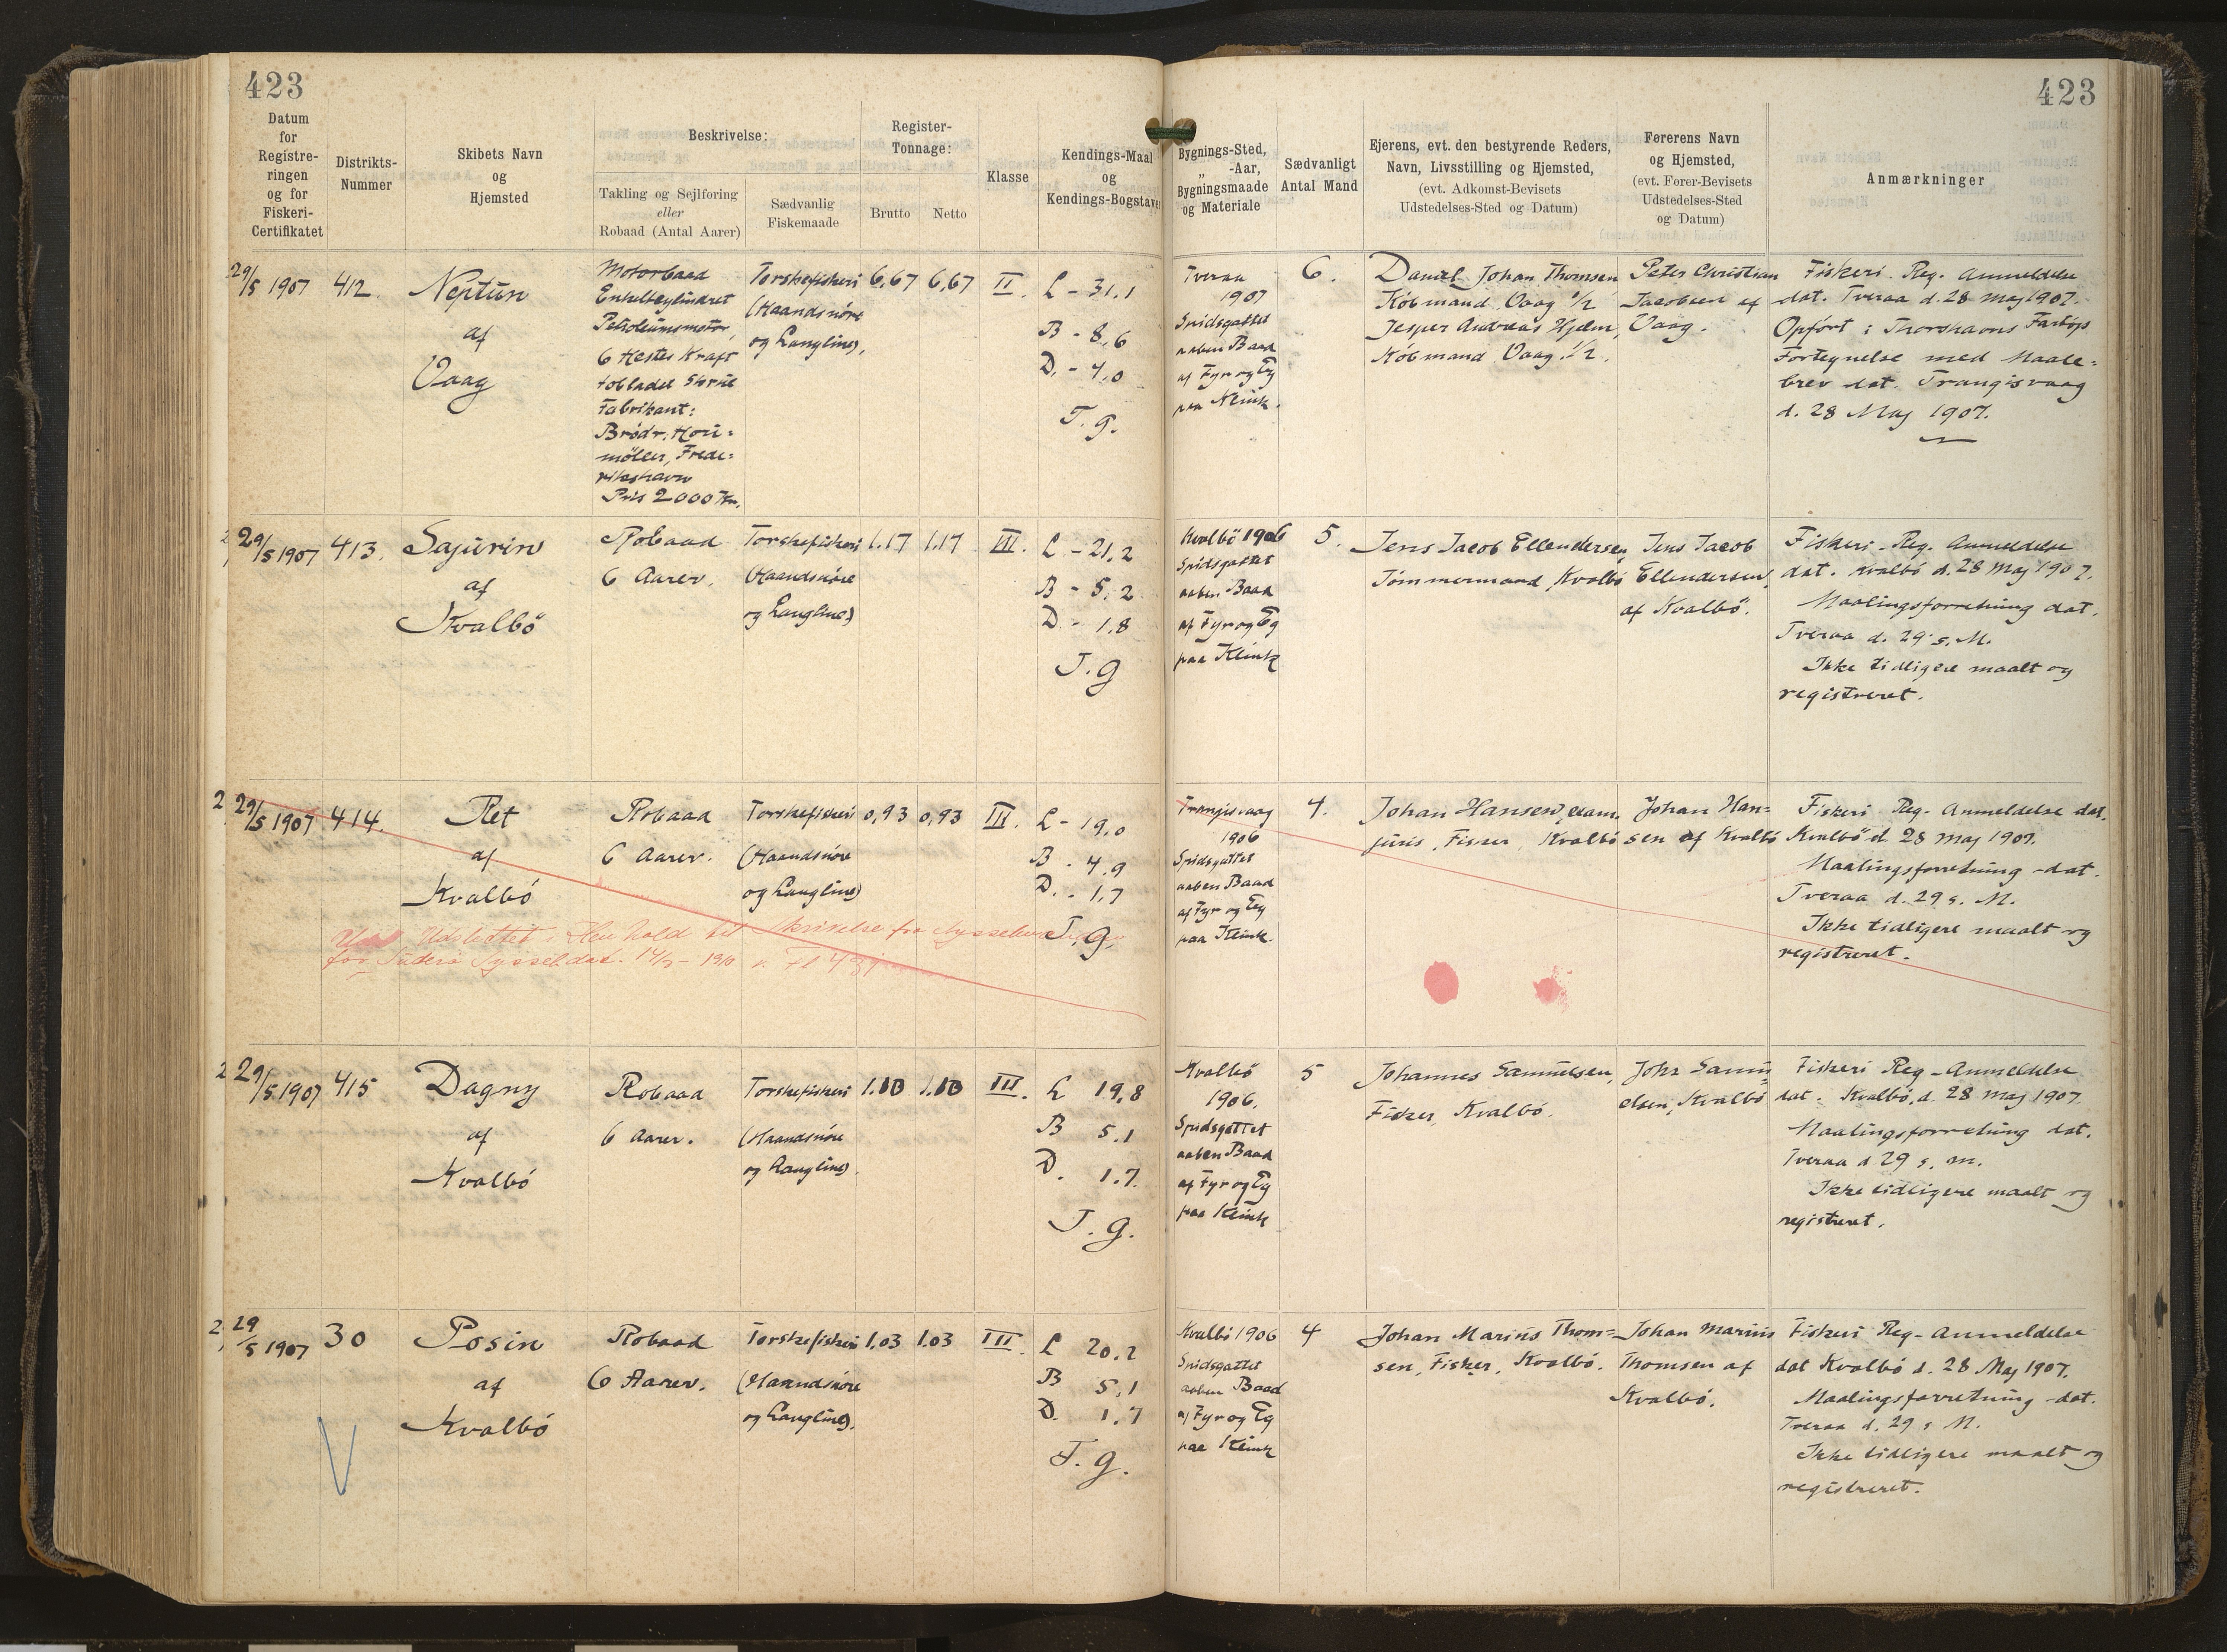 423
423
Datum
for
Registre-
ringen
og for
Fiskeri-
Certifikatet
Distrikts-
Nummer
Skibets Navn
og
Hjemsted
Beskrivelse:
Takling og Sejlføring
eller
Robaad (Antal Aarer)
Sædvanlig
Fiskemaade
Register-
Tonnage:
Brutto
Netto
Klasse
Kendings-Maal
og
Kendings-Bogstaver
Bygnings-Sted,
„ -Aar,
Bygningsmaade
og Materiale
Sædvanligt
Antal Mand
Ejerens, evt. den bestyrende Reders,
Navn, Livsstilling og Hjemsted,
(evt. Adkomst-Bevisets
Udstedelses-Sted og Datum)
Førerens Navn
og Hjemsted,
(evt. Fører-Bevisets
Udstedelses-Sted
og Datum)
Anmærkninger
29/5 1907
412.
Neptün
af
Vaag
Motorbaad
Enkeltcylindret
Petroleümsmotor
6 Hestes Kraft
tobladet Skrüe
Fabrikant:
Brödr. Hoü=
möller, Frede=
rikshavn
Pris 2000 Kr.
Torskefiskeri
(Haandsnöre
og Langline),
6,67
6,67
II.
L - 31,1
B - 8,6
D. - 4,0
T. g.
Tveraa
1907
Spidsgattet
aaben Baad
af Fyr og Eg
paa Klink.
6.
Daniel Johan Thomsen
Købmand, Vaag 1/2
Jesper Andreas Hjelm,
Købmand Vaag. 1/2.
Peter Christian
Jacobsen af
Vaag.
Fiskeri. Reg. Anmeldelse
dat. Tveraa d. 28 Maj 1907.
Opført i Thorshavns Fartøjs
Fortegnelse med Maale=
brev dat. Trangisvaag
d. 28 Maj 1907.
29/5 1907
413.
Sajürin
af
Kvalbö
Robaad
6 Aarer.
Torskefiskeri
(Haandsnöre
og Langline)
1.17
1.17
III.
L - 21,2
B - 5,2
D - 1,8
T. g
Kvalbö 1906
Spidsgattet
aaben Baad
af Fyr og Eg
paa Klink
5.
Jens Jacob Ellendersen,
Tömmermand, Kvalbö
Jens Jacob
Ellendersen,
af Kvalbö.
Fiskeri-Reg. Anmeldelse
dat. Kvalbö d. 28 Maj 1907.
Maalingsforretning dat.
Tveraa d. 29 s. M.
Ikke tidligere maalt og
registreret.
29/5 1907
414.
Ret
af
Kvalbö
Robaad
6 Aarer.
Torskefiskeri
(Haandsnöre
og Langline)
0,93
0,93
III.
L - 19,0
B - 4,9
D. - 1,7
T. g.
Udslettet i Henhold til Skrivelse fra Sysselmanden
for Süderö Syssel dat. 14/3 - 1910
Trangisvaag
1906
Spidsgattet
aaben Baad
af Fyr og Eg
paa Klink.
4.
Johan Hansen,
Fisker, Kvalbö
Johan Han=
sen af Kvalbö
Fiskeri Reg-Anmeldelse dat.
Kvalbö d. 28 Maj 1907.
Maalingsforretning dat.
Tveraa d. 29 s. M.
Ikke tidligere maalt og
registreret.
29/5 1907
415
Dagny
af
Kvalbö
Robaad
6 Aarer.
Torskefiskeri
(Haandsnöre
og Langline).
1.10
1.10
III.
L 19,8
B 5,1
D. 1.7.
T. g.
Kvalbö
1906.
Spidsgattet
aaben Baad
af Fyr og Eg
paa Klink
5
Johannes Samüelsen,
Fisker, Kvalbö.
Johs Samü=
elsen, Kvalbö
Fiskeri Reg-Anmeldelse
dat. Kvalbö, d. 28 Maj 1907
Maalingsforretning dat.
Tveraa d 29 s. m.
Ikke tidligere maalt og
registreret.
29/5 1907
30
Posin
af
Kvalbö
Robaad
6 Aarer.
Torskefiskeri
(Haandsnöre
og Langline).
1.03
1.03
III.
L 20,2
B 5,1
D. 1,7
T. g.
Kvalbö 1906
Spidsgattet
aaben Baad
af Fyr og Eg
paa Klink
4
Johan Mariüs Thom=
sen, Fisker, Kvalbö.
Johan Mariüs
Thomsen af
Kvalbö.
Fiskeri Reg-Anmeldelse
dat Kvalbö d. 28 Maj 1907.
Maalingsforretning dat.
Tveraa d. 29 s M.
Ikke tidligere maalt og
registreret.